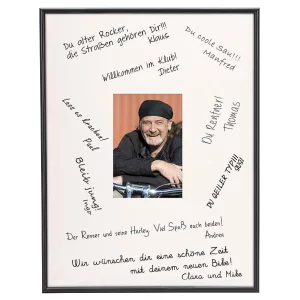 Du alter Rocker,
die Straßen gehören Dir!!!
Klaus
Du coole Sau!!!
Manfred
Willkommen im Klub!
Dieter
Lass es krachen!
Paul
Du Rentner!
Thomas
Bleib jung!
Ingo
DU GEILER TYP!!!
Der Reiner und seine Harley. Viel Spaß euch beiden!
Andrea
Wir wünschen dir eine schöne Zeit
mit deinem neuen Bike!
Clara und Mike